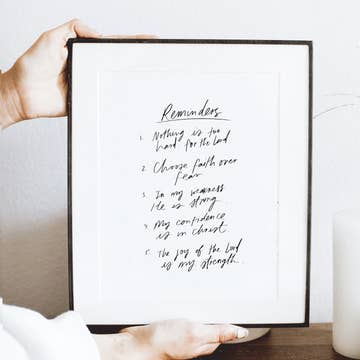 Reminders
1. Nothing is too
hard for the Lord
2. Choose faith over
fear
3. In my weakness
He is strong
4. My confidence
is in Christ
5. The joy of the Lord
is my strength.